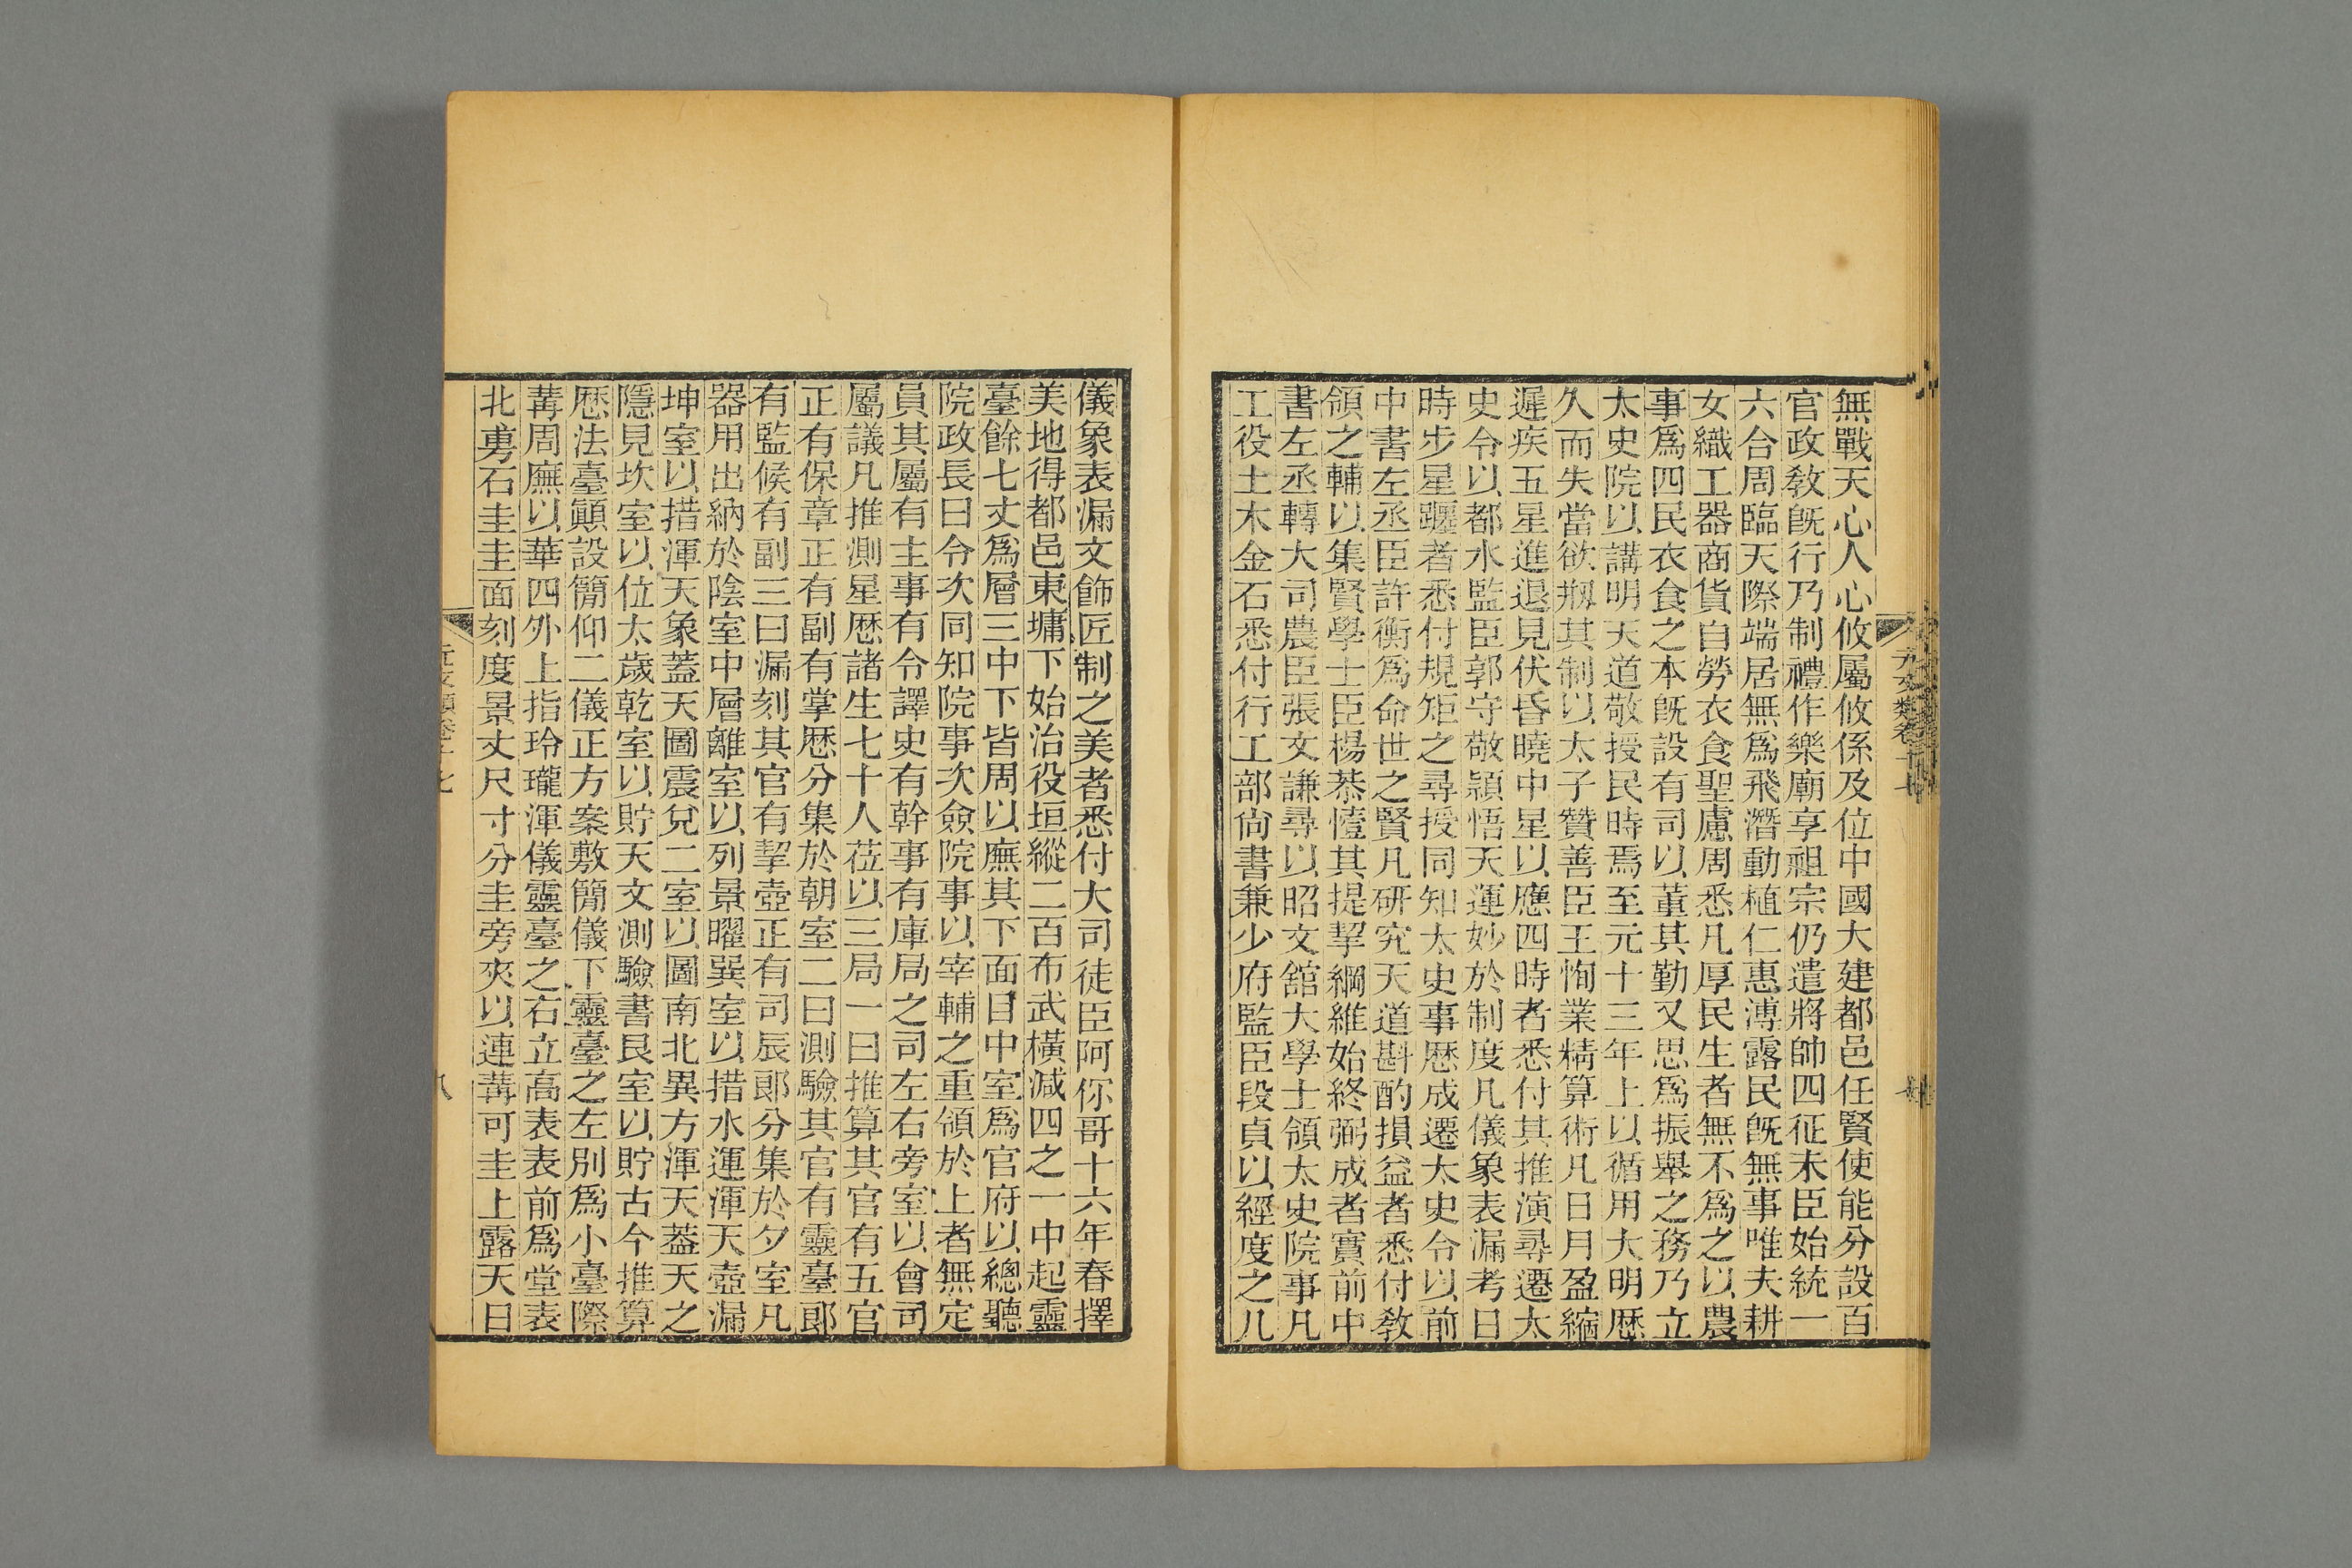 無戰天心人心攸屬攸係及位中國大建都邑任賢使能分設百
官政教旣行乃制禮作樂廟享祖宗仍遣將帥四征未臣始統一
六合周臨天際端居無爲飛潛動植仁惠溥露民旣無事唯夫耕
女織工器商貨自勞衣食聖慮周悉凡厚民生者無不爲之以農
事爲四民衣食之本旣設有司以董其勤又思爲振舉之務乃立
太史院以講明天道敬授民時焉至元十三年上以循用大明歷
久而失當欲剏其制以太子贊善臣王恂業精算術凡日月盈縮
遲疾五星進退見伏昏曉中星以應四時者悉付其推演尋遷太
史令以都水監臣郭守敬穎悟天運妙於制度凡儀象表漏考日
時步星躔者悉付規矩之尋授同知太史事歷成遷太史令以前
中書左丞臣許衡爲命世之賢凡研究天道斟酌損益者悉付敎
領之輔以集賢學士臣楊恭懿其提挈綱維始終弼成者實前中
書左丞轉大司農臣張文謙尋以昭文舘大學士領太史院事凡
工役土木金石悉付行工部尙書兼少府監臣段貞以經度之凡
儀象表漏文飾匠制之美者悉付大司徒臣阿你哥十六年春擇
美地得都邑東墉下始治役垣縱二百布武橫減四之一中起靈
臺餘七丈爲層三中下皆周以廡其下面目中室爲官府以總聽
院政長曰令次同知院事次僉院事以宰輔之重領於上者無定
員其屬有主事有令譯史有幹事有庫局之司左右旁室以會司
屬議凡推測星歷諸生七十人莅以三局一曰推算其官有五官
正有保章正有副有掌歷分集於朝室二曰測驗其官有靈臺郎
有監候有副三曰漏刻其官有挈壺正有司辰郎分集於夕室凡
器用出納於陰室中層離室以列景曜巽室以措水運渾天壺漏
坤室以措渾天象蓋天圖震兌二室以圖南北異方渾天蓋天之
隱見坎室以位太歲乾室以貯天文測驗書艮室以貯古今推算
歷法臺顚設簡仰二儀正方案敷簡儀下靈臺之左別爲小臺際
冓周廡以華四外上指玲瓏渾儀靈臺之右立高表表前爲堂表
北旉石圭圭面刻度景丈尺寸分圭旁夾以連冓可圭上露天日